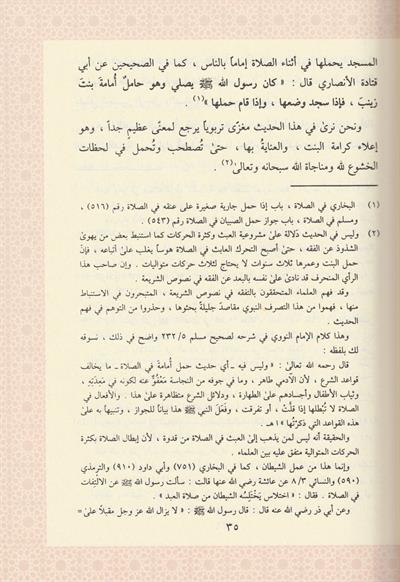 المسجد يحملها في أثناء الصلاة إماماً بالناس ، كما في الصحيحين عن أبي
قتادة الأنصاري قال : « كان رسول الله ﷺ يصلي وهو حاملٌ أُمامةَ بنتَ
زينبَ ، فإذا سجد وضعها ، وإذا قام حملها »(١) .
ونحن نرىٰ في هذا الحديث مغزًى تربوياً يرجع لمعنًى عظيم جداً ، وهو
إعلاء كرامة البنت ، والعنايةُ بها ، حتىٰ تُصطحب وتُحمل في لحظات
الخشوع لله ومناجاة الله سبحانه وتعالىٰ(٢) .
(١) البخاري في الصلاة ، باب إذا حمل جارية صغيرة على عنقه في الصلاة رقم (٥١٦) ،
ومسلم في الصلاة ، باب جواز حمل الصبيان في الصلاة رقم (٥٤٣) .
(٢) وليس في الحديث دلالة علىٰ مشروعية العبث وكثرة الحركات كما استنبط بعض من يهوىٰ
الشذوذ عن الفقه ، حتىٰ أصبح التحرك العابث في الصلاة هوساً يغلب علىٰ أتباعه ، فإنَّ
حمل البنت وعمرها ثلاث سنوات لا يحتاج لثلاث حركات متواليات . وإن صاحب هذا
الرأي المنحرف قد نادىٰ علىٰ نفسه بالبعد عن الفقه في نصوص الشريعة .
وقد فهم العلماء المتحققون بالتفقه في نصوص الشريعة ، المتبحرون في الاستنباط
منها ، فهموا من هذا التصرف النبوي مقاصدَ جليلةً بحثوها ، وحذروا من التوهم في فهم
الحديث .
وهذا كلام الإمام النووي في شرحه لصحيح مسلم ٥/ ٢٣٢ واضح في ذلك ، نسوقه
لك بلفظه :
قال رحمه الله تعالىٰ : « وليس فيه ـ أي حديث حمل أُمامةَ في الصلاة ـ ما يخالف
قواعد الشرع ، لأن الآدمي طاهر ، وما في جوفه من النجاسة مَعْفُوٌّ عنه لكونه في مَعِدَتِهِ ،
وثياب الأطفال وأجسادهم على الطهارة ، ودلائل الشرع متظاهرة علىٰ هذا . والأفعال في
الصلاة لا تُبطلها إذا قلَّتْ ، أو تفرقت ، وفَعَلَ النبيُّ ﷺ هذا بياناً للجواز ، وتنبيهاً به علىٰ
هذه القواعد التي ذكرْتُها » ا هـ .
والحقيقة أنه ليس لمن يذهب إلىٰ العبث في الصلاة من قدوة ، لأن إبطال الصلاة بكثرة
الحركات المتوالية متفق عليه بين العلماء .
وإنما هذا من عمل الشيطان ، كما في البخاري (٧٥١) وأبي داود (٩١٠) والترمذي
(٥٩٠) والنسائي ٨/٣ عن عائشة رضي الله عنها قالت : سألت رسول الله ﷺ عن الالتفات
في الصلاة . فقال : « اختلاس يَخْتَلِسُه الشيطان من صلاة العبد » .
وعن أبي ذر رضي الله عنه قال : قال رسول الله ﷺ : « لا يزال الله عز وجل مقبلاً علىٰ =
٣٥